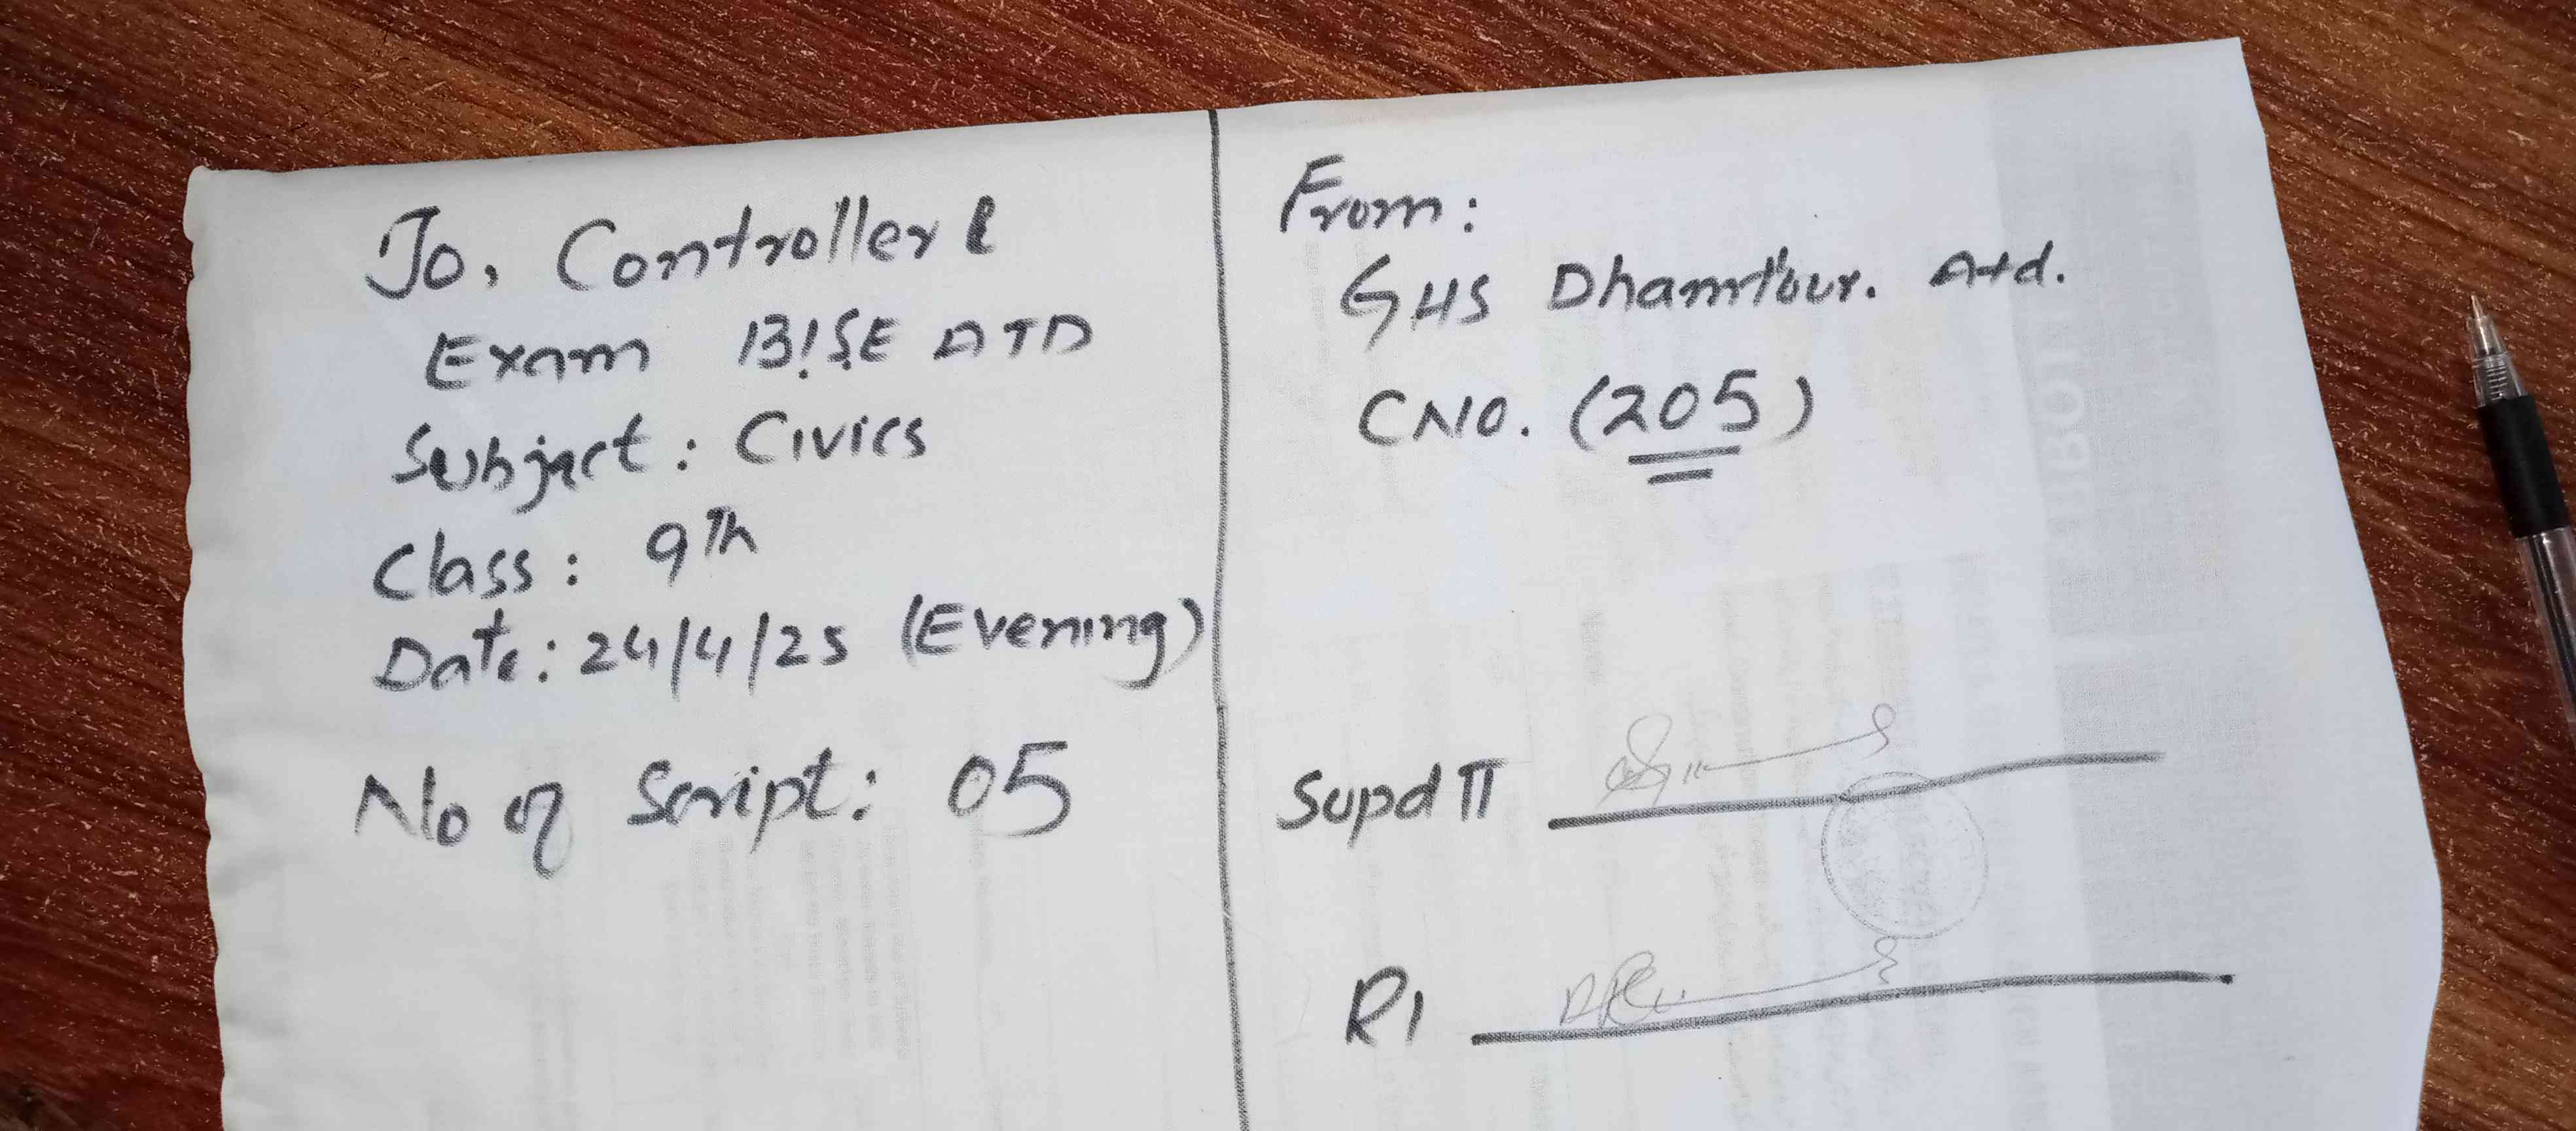 To, Controller
Exam BISE ATD
Subject: Civics
Class: 9th
Date: 24/4/25 (Evening)
No of Script: 05
From:
GHS Dhamtour. Atd.
CNO. (205)
Supd II
RI